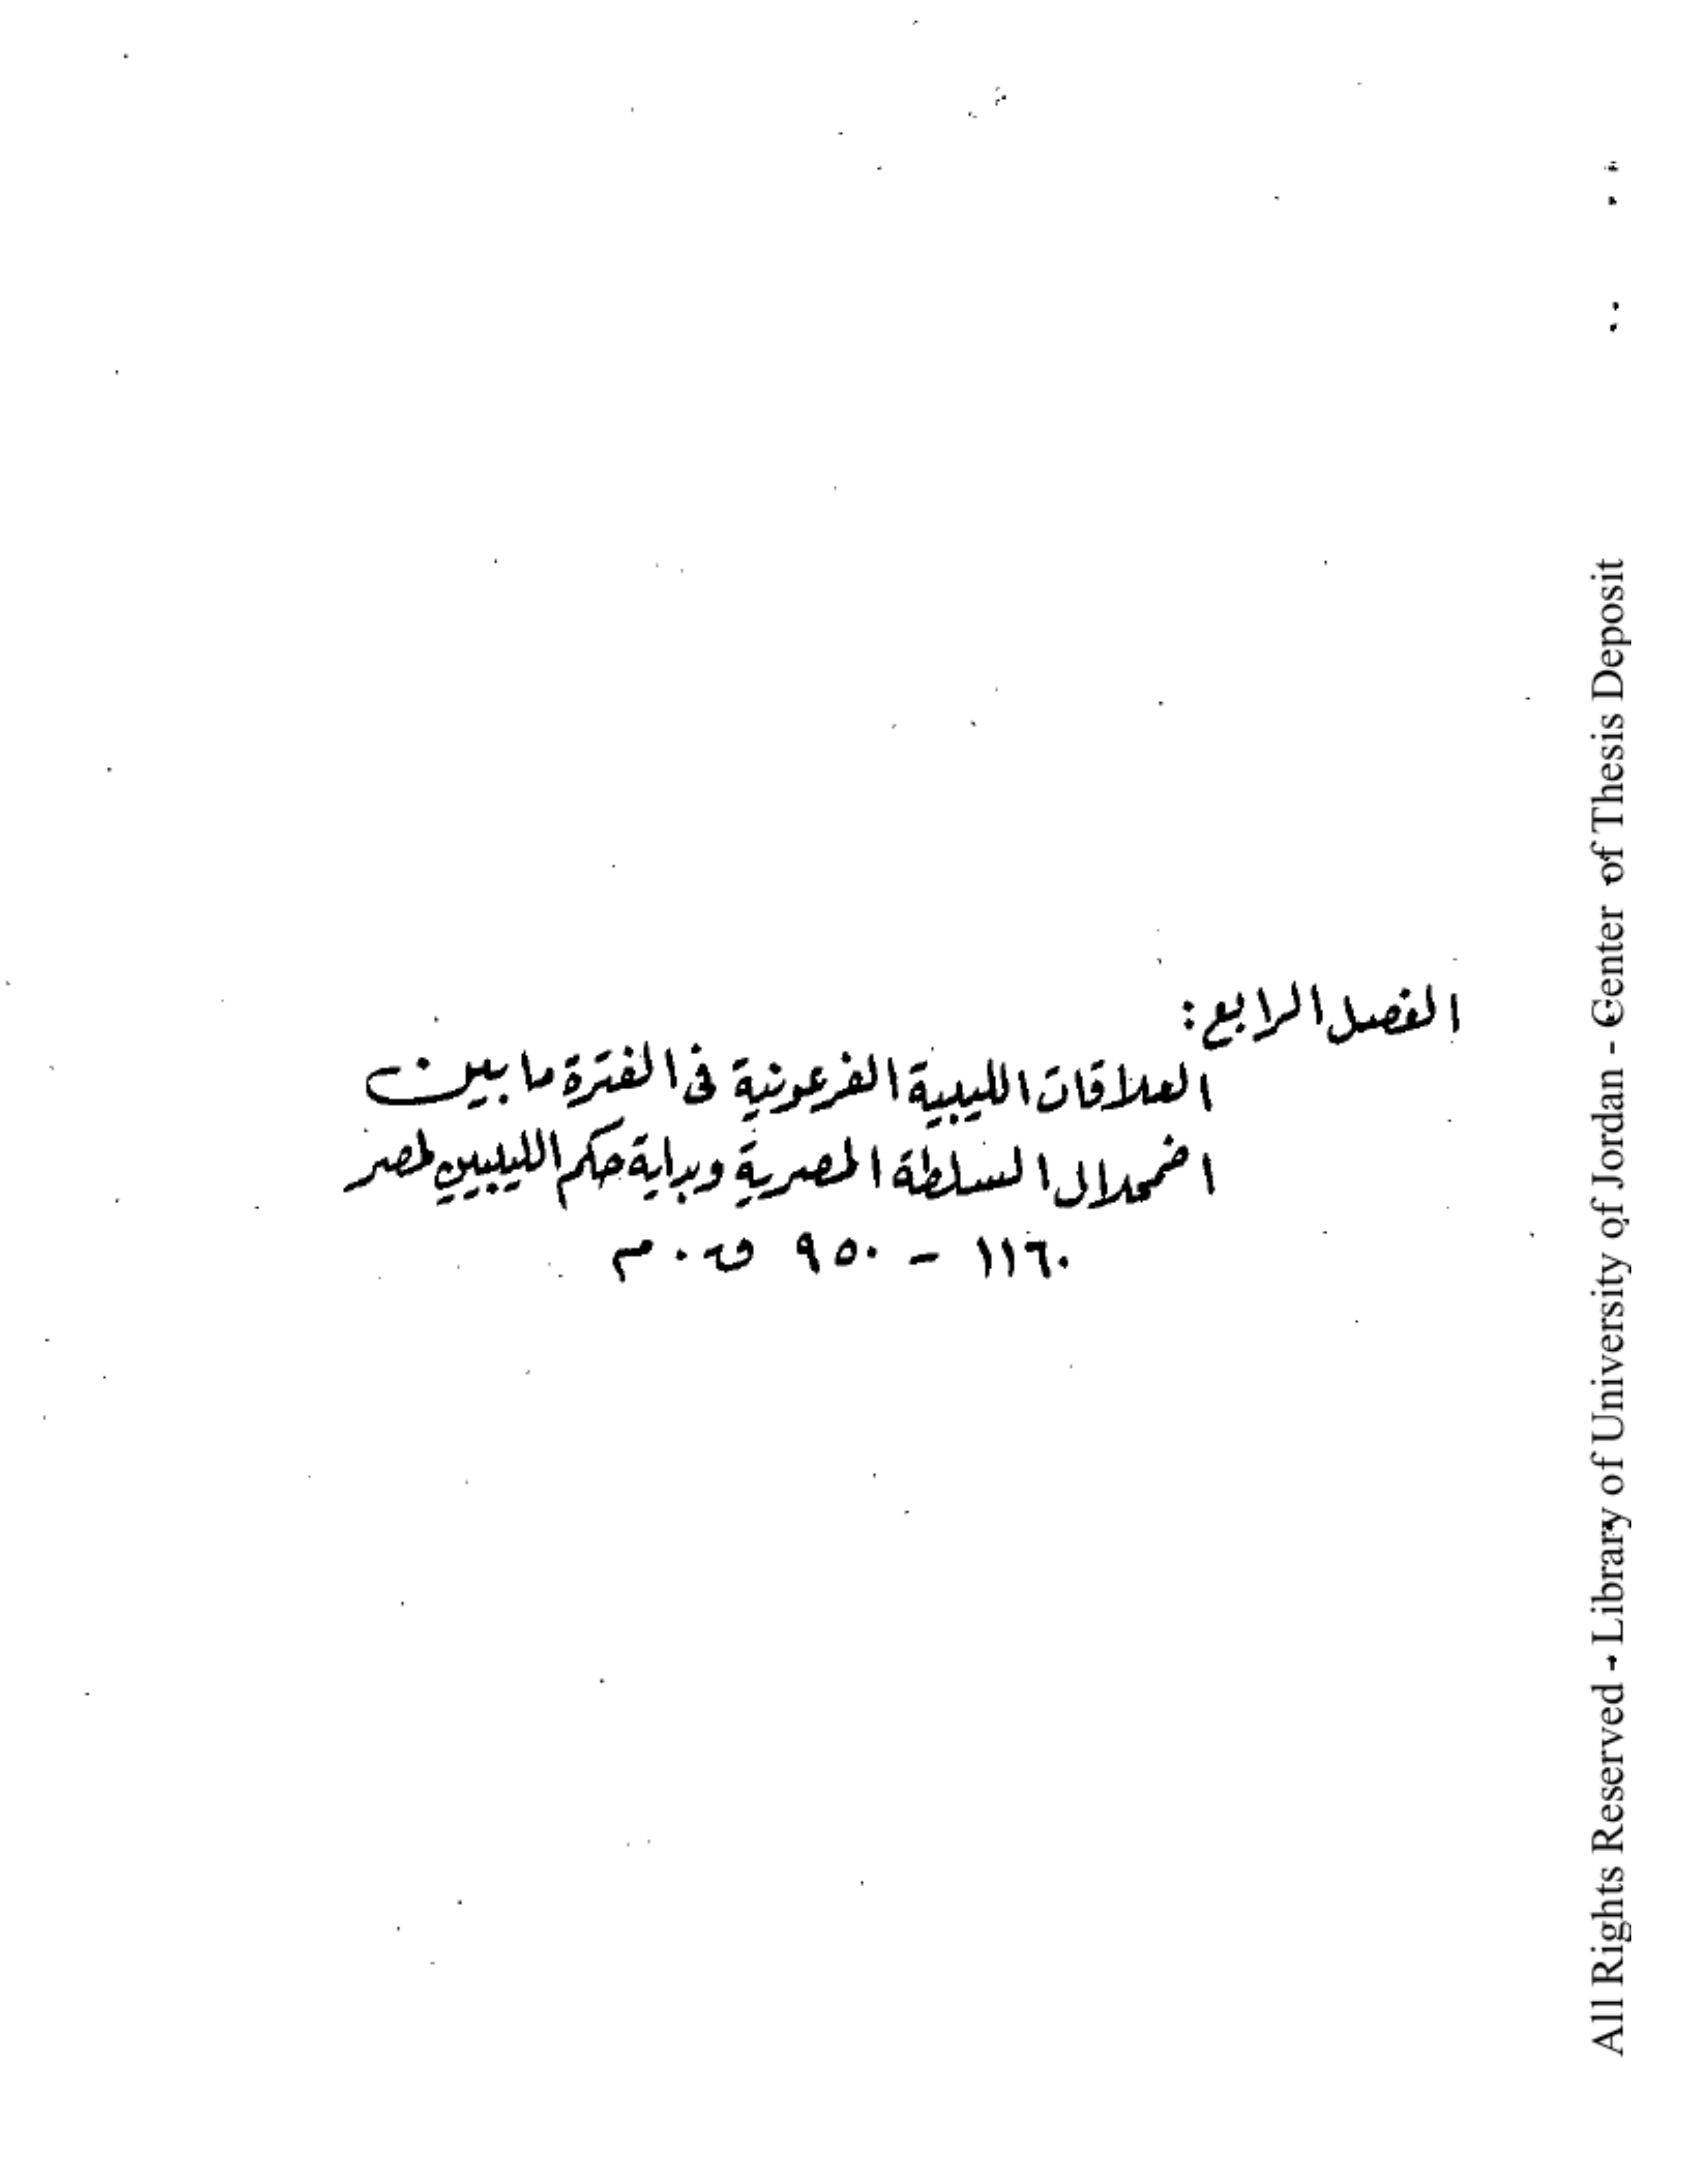 الفصل الرابع:
العلاقات الليبية الفرعونية في الفترة ما بين
اضمحلال السلطة المصرية وبداية حكم الليبيين لمصر
١١٦٠ - ٩٥٠ ق.م
All Rights Reserved - Library of University of Jordan - Center of Thesis Deposit